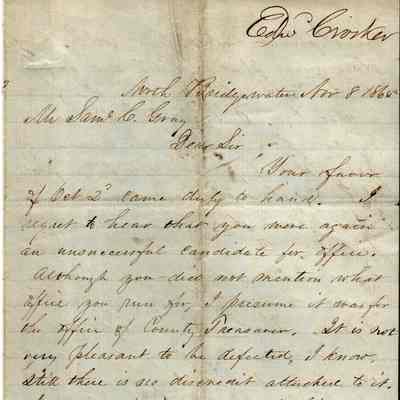 Edwd Crosker
North Bridgewater Nov 8 1865
Mr Saml C. Gray
Dear Sir
Your favor
of Oct 2d came duly to hand. I
regret to hear that you were again
an unsuccessful candidate for office.
Although you did not mention what
office you run for, I presume it was for
the office of County Treasurer. It is not
very pleasant to be defeated, I know,
still there is no discredit attached to it.